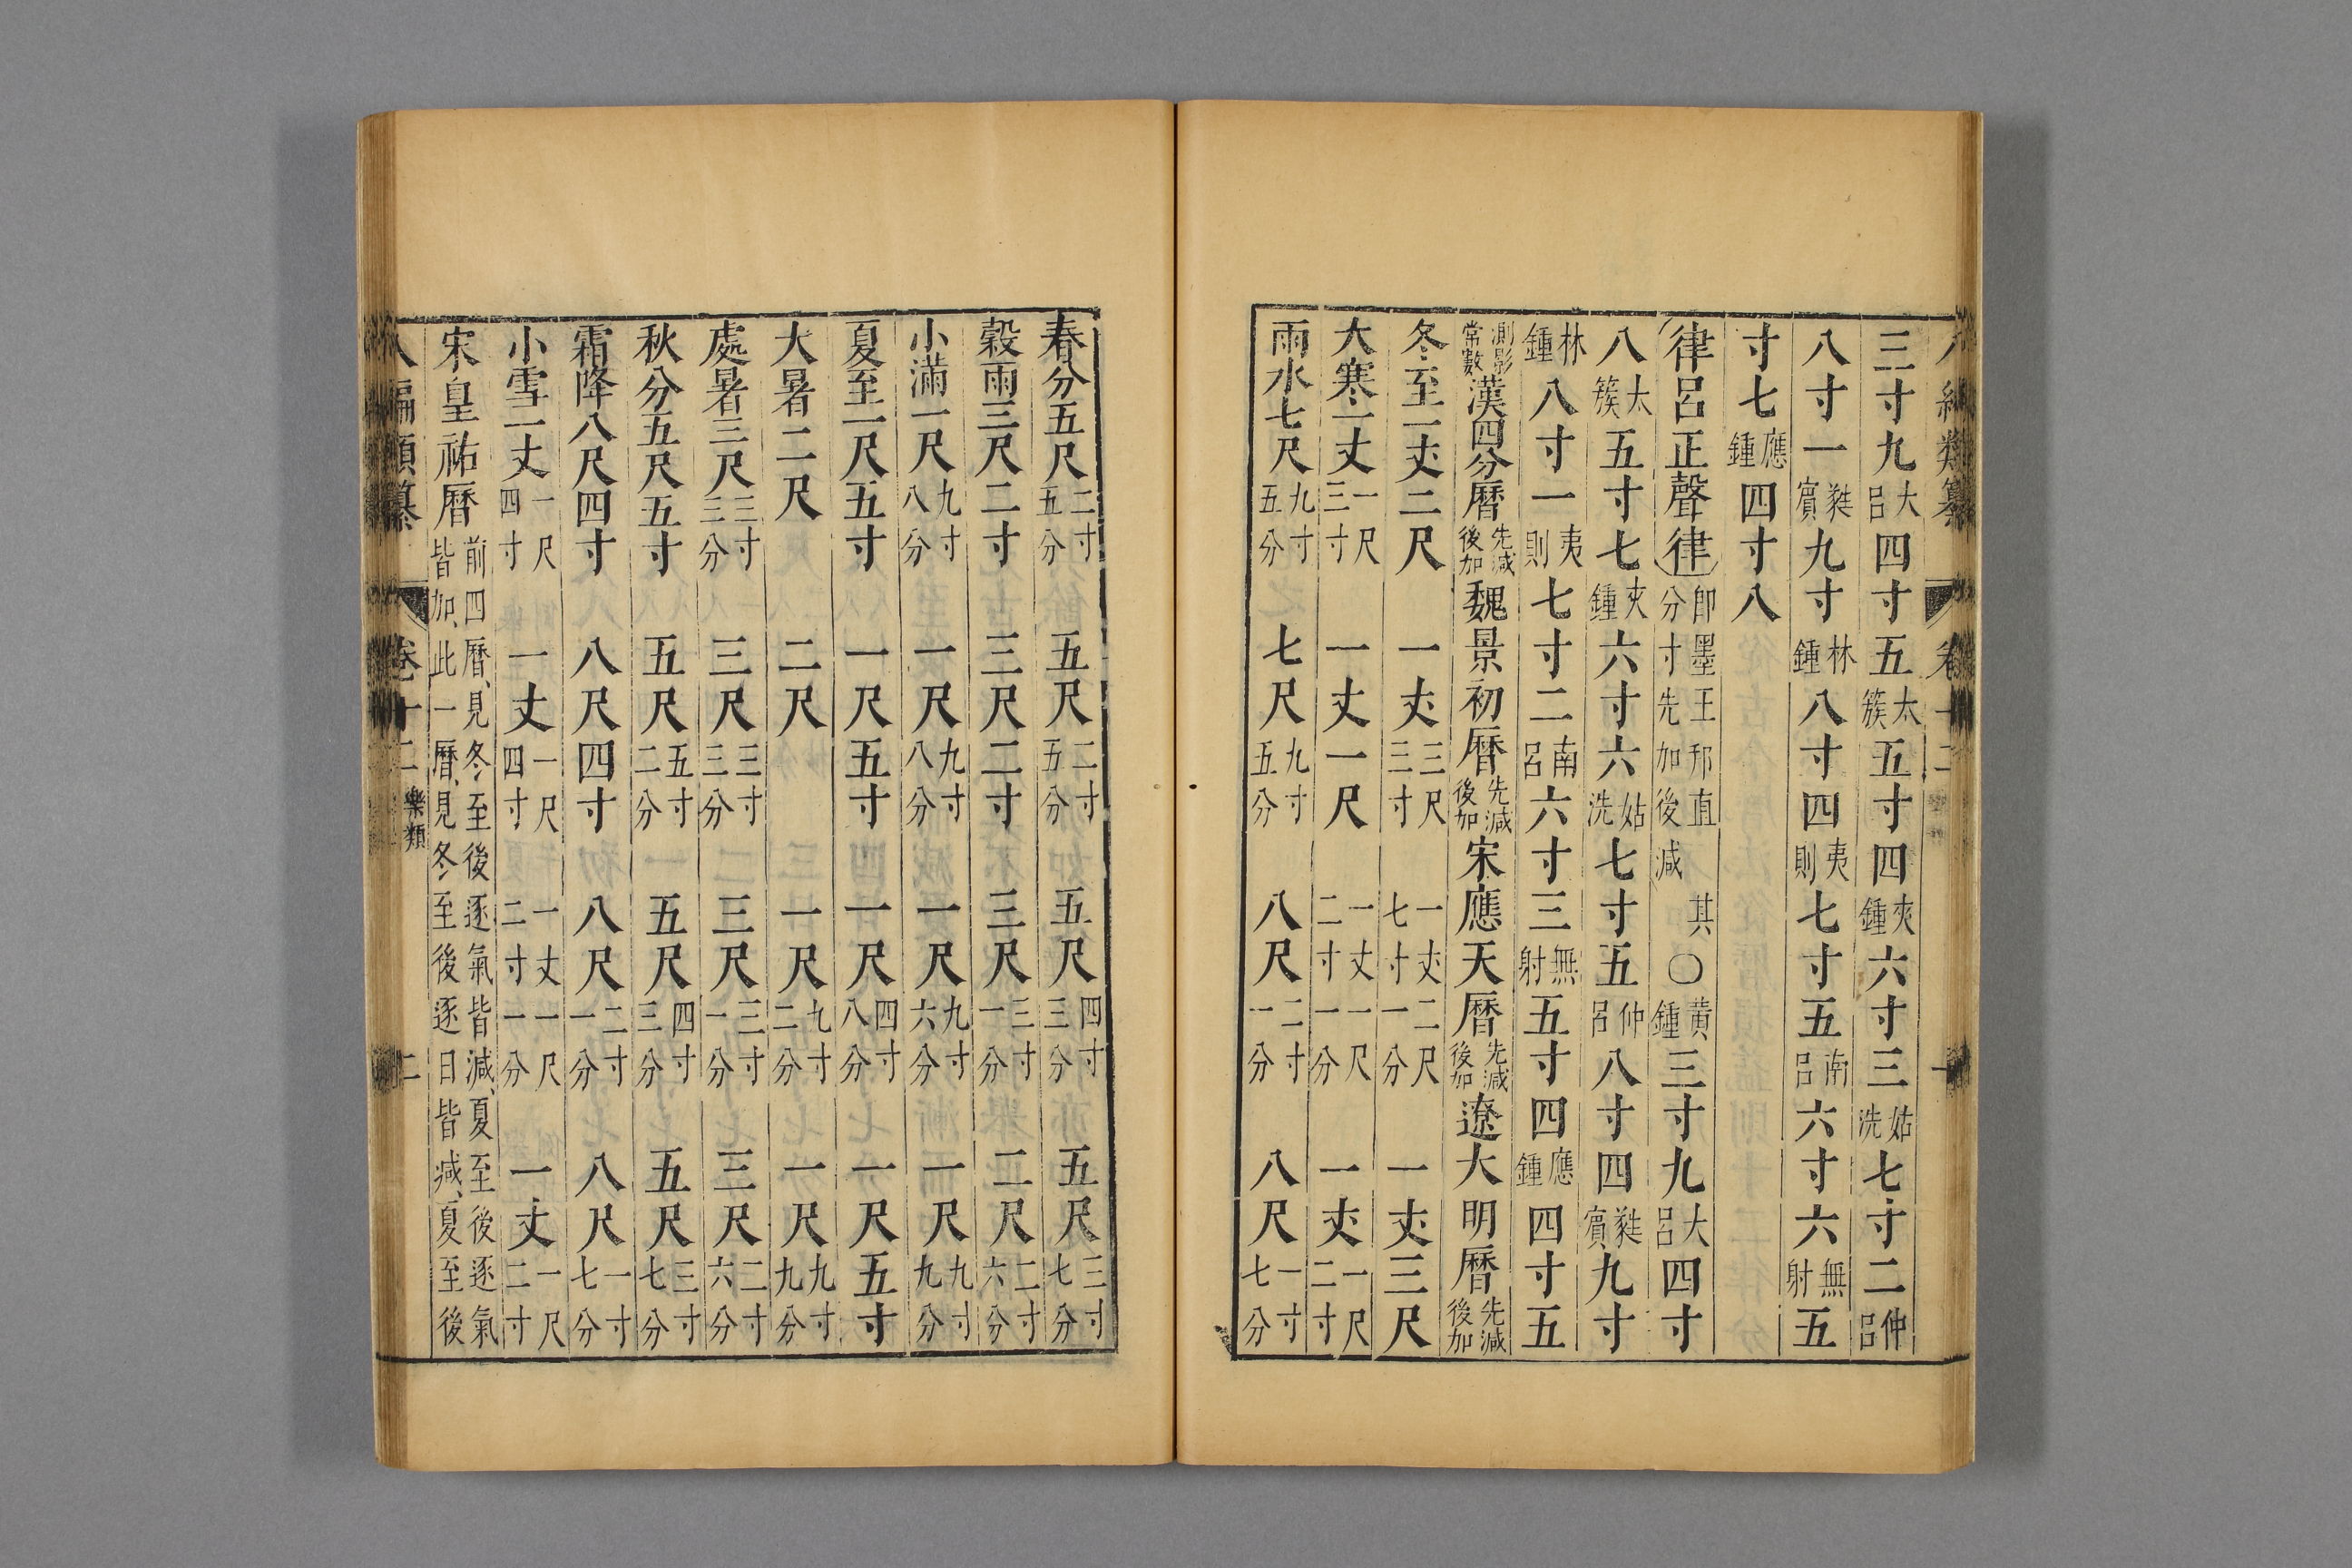 八編類纂 卷十二
三寸九大呂四寸五太簇五寸四夾鍾六寸三姑洗七寸二仲呂
八寸一蕤賓九寸林鍾八寸四夷則七寸五南呂六寸六無射五
寸七應鍾四寸八
律呂正聲律即墨王邦直其分寸先加後減○黃鍾三寸九大呂四寸
八太簇五寸七夾鍾六寸六姑洗七寸五仲呂八寸四蕤賓九寸
林鍾八寸一夷則七寸二南呂六寸三無射五寸四應鍾四寸五
測影常數漢四分曆先減後加魏景初曆先減後加宋應天曆先減後加遼大明曆先減後加
冬至一丈二尺 一丈三尺三寸 一丈二尺七寸一分 一丈三尺
大寒一丈一尺三寸 一丈一尺 一丈一尺二寸一分 一丈一尺二寸
雨水七尺九寸五分 七尺九寸五分 八尺二寸一分 八尺一寸七分
春分五尺二寸五分 五尺二寸五分 五尺四寸三分 五尺三寸七分
穀雨三尺二寸 三尺二寸 三尺三寸一分 二尺二寸六分
小滿一尺九寸八分 一尺九寸八分 一尺九寸六分 一尺九寸九分
夏至一尺五寸 一尺五寸 一尺四寸八分 一尺五寸
大暑二尺 二尺 一尺九寸二分 一尺九寸九分
處暑三尺三寸三分 三尺三寸三分 三尺三寸一分 三尺二寸六分
秋分五尺五寸 五尺五寸二分 五尺四寸三分 五尺三寸七分
霜降八尺四寸 八尺四寸 八尺二寸一分 八尺一寸七分
小雪一丈一尺四寸 一丈一尺四寸 一丈一尺二寸一分 一丈一尺二寸
宋皇祐曆前四曆、見冬至後逐氣皆減、夏至後逐氣皆加、此一曆、見冬至後逐日皆減、夏至後
八編類纂 卷十二 樂類 二